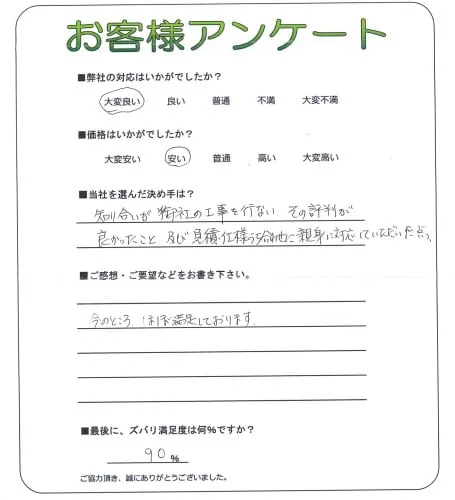 お客様アンケート
■弊社の対応はいかがでしたか?
大変良い 良い 普通 不満 大変不満
■価格はいかがでしたか?
大変安い 安い 普通 高い 大変高い
■当社を選んだ決め手は?
知り合いが御社の工事を行ない、その評判が
良かったこと、及び見積・仕様打合せ他に親身に対応していただいた点。
■ご感想・ご要望などをお書き下さい。
今のところ、ほぼ満足しております。
■最後に、ズバリ満足度は何%ですか?
90%
ご協力頂き、誠にありがとうございました。